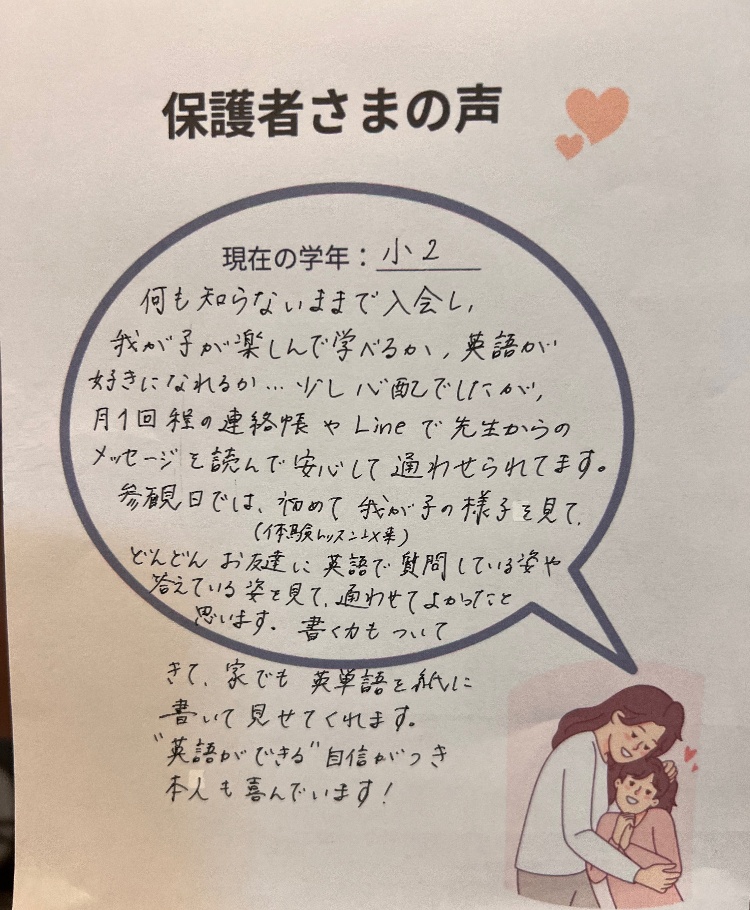 保護者さまの声
現在の学年：小2
何も知らないままで入会し、
我が子が楽しんで学べるか、英語が
好きになれるか…少し心配でしたが、
月1回程の連絡帳やLineで先生からの
メッセージを読んで安心して通わせられてます。
参観日では、初めて我が子の様子を見て、
(体験レッスン以来)
どんどんお友達に英語で質問している姿や
答えている姿を見て、通わせてよかったと
思います。書く力もついて
きて、家でも英単語を紙に
書いて見せてくれます。
"英語ができる"自信がつき
本人も喜んでいます！